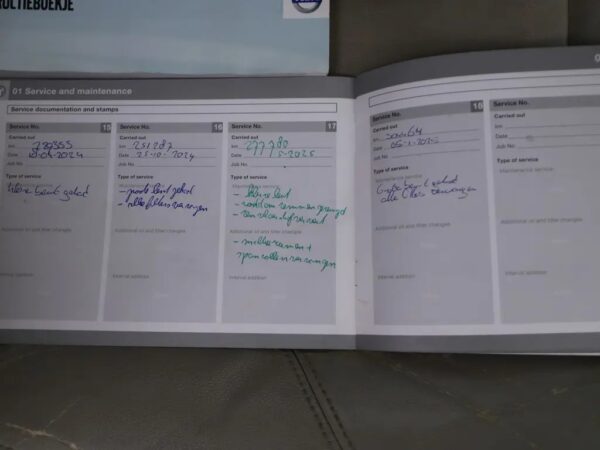 RUCTIEBOEKJE
01 Service and maintenance
Service documentation and stamps
Service No. 15
Carried out
km
Date -04-2024
Job No.
Type of service
beurt gehad
Additional oil and filter changes
Service No. 16
Carried out
km 251287
Date 25-10-2024
Job No.
Type of service
Maintenance service
- grote beurt gehad
- alle filters vervangen
Additional oil and filter changes
Interval addition
Service No. 17
Carried out
km 277780
Date 5-2025
Job No.
Type of service
Maintenance service
- kleine beurt
- rondom remmen gereinigd
Additional oil and filter changes
vervangen
Interval addition
Service No. 18
Carried out
km
Date 05-1-
Job No.
Type of service
Maintenance service
Grote beurt gehad
alle filters vervangen
Additional oil and filter changes
Interval addition
Service No.
Carried out
km
Date
Job No.
Type of service
Maintenance service
Additional oil and filter changes
Interval addition